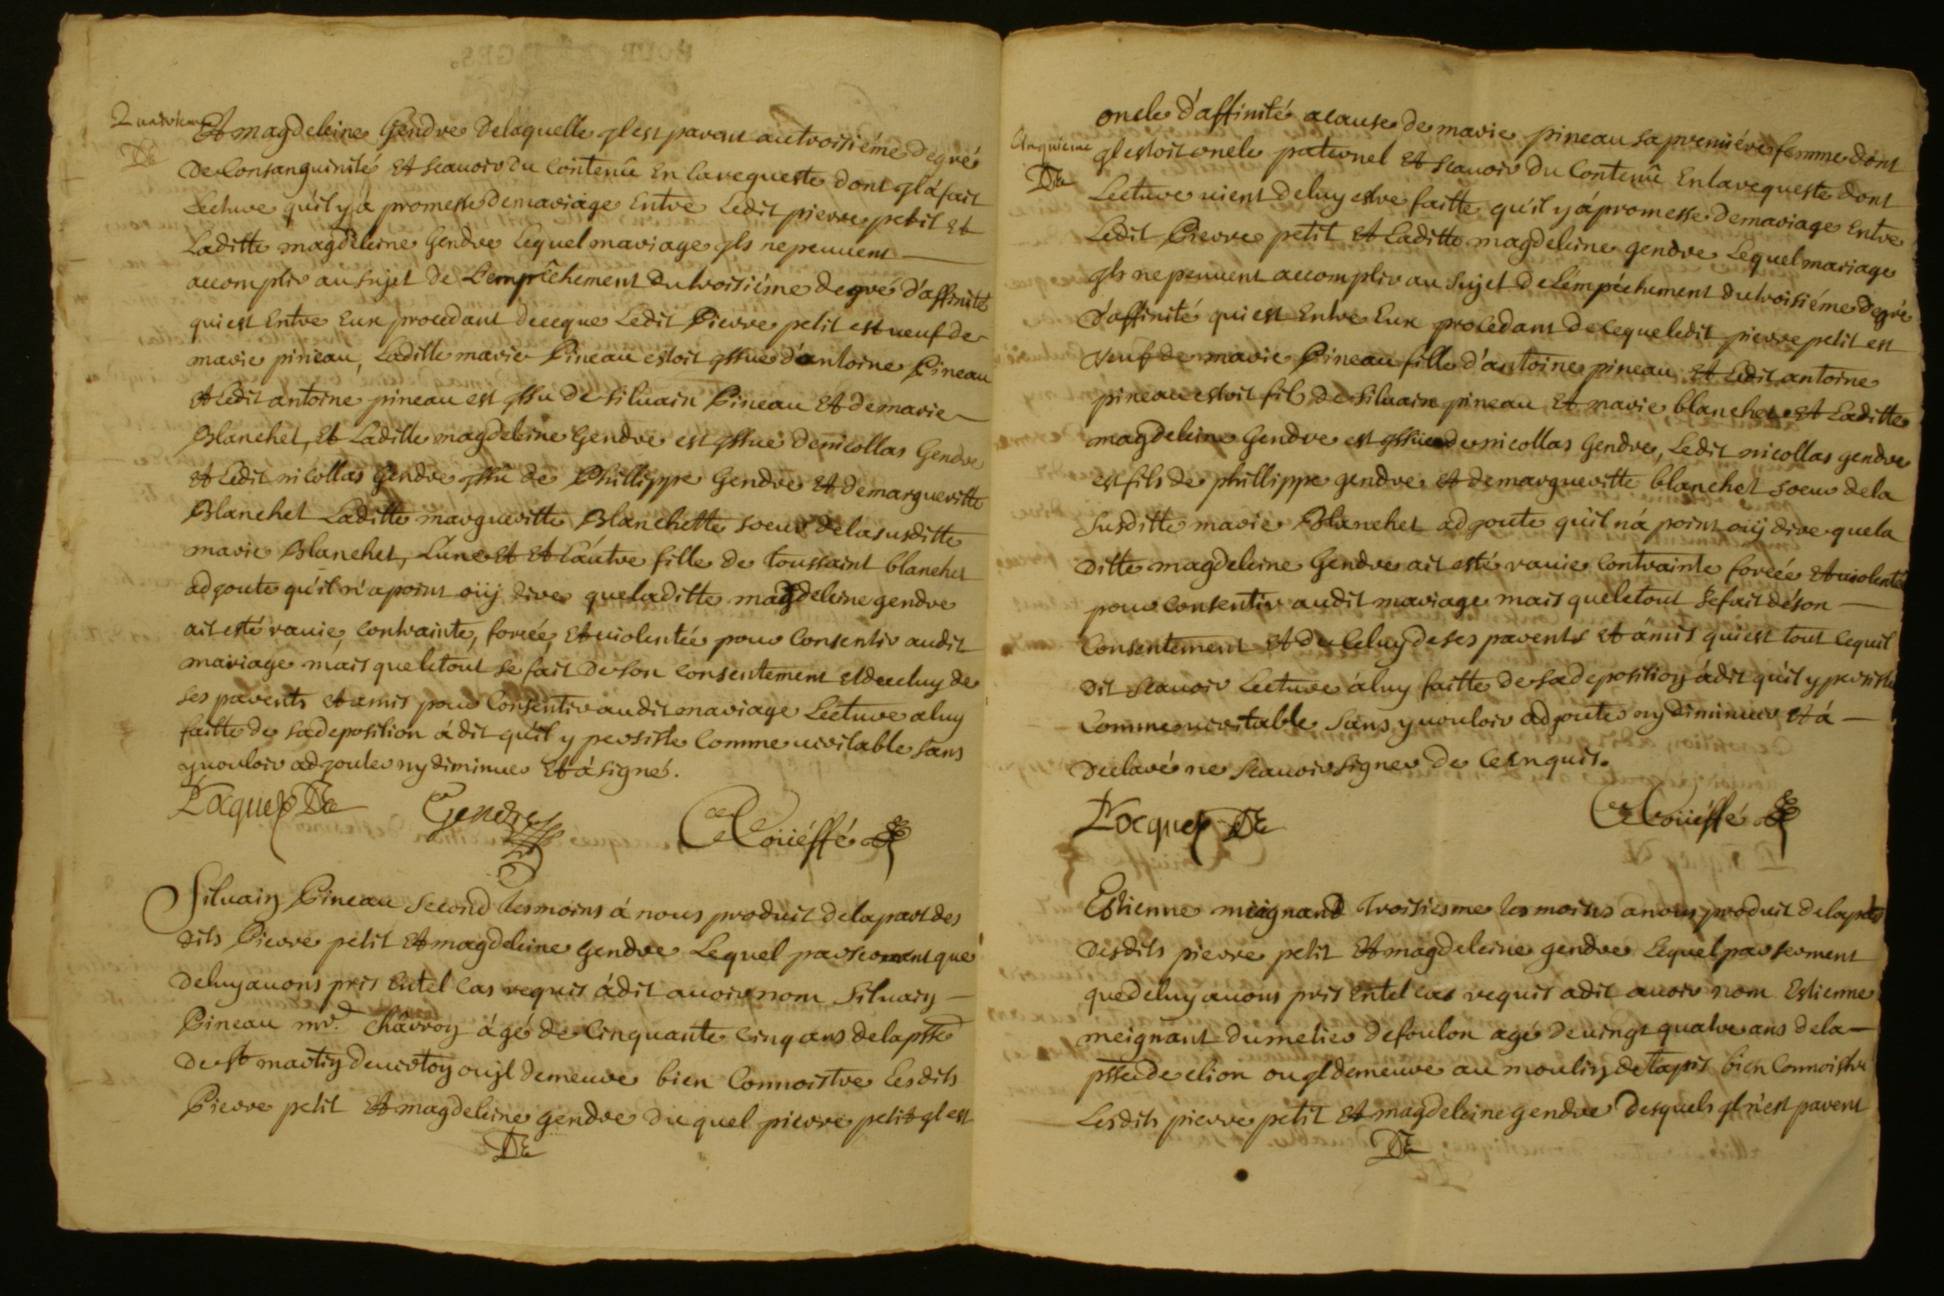 Quatriéme
Et magdeleine Gendre de laquelle jl est parent au troisiéme degré
De Consanguinité Et scauoir du Contenû En la requeste dont jl á fait
Lecture qu'il y á promesse de mariage Entre Ledit pierre petit Et
Laditte magdeleine Gendre Lequel mariage jls ne peuuent
accomplir au sujet de L'empêchement du troisiéme degré d'affinité
qui est Entre Eux procedant de ceque Ledit Pierre petit est ueuf de
marie pineau, Laditte marie Pineau estoit jssue d'antoine Pineau
Et Ledit antoine pineau est jssu de siluain Pineau Et de marie
Blanchet, Et Laditte magdeleine Gendre est jssue de nicollas Gendre
Et Ledit nicollas Gendre jssû de Phillippe Gendre Et de margueritte
Blanchet Laditte margueritte Blanchette soeur de la susditte
marie Blanchet, L'une Et Et L'autre fille de toussaint blanchet
adjoute qu'il n'a point oüy dire que laditte magdeleine gendre
ait esté rauie, contrainte, forcée, Et uiolentée pour Consentir audit
mariage mais que le tout se fait de son consentement et de celuy de
ses parents Et amis pour Consentir audit mariage Lecture a luy
faitte de sa deposition á dit qu'il y persiste Comme ueritable sans
y uouloir adjouter ny diminuer Et á signé.
Gendre
Siluain Pineau second tesmoins á nous produit de la part des
dits Pierre petit Et magdeleine gendre Lequel par serment que
de luy auons pris En tel Cas requis á dit auoir nom Siluain
Pineau mr.d Charron ágé de Cinquante Cinq ans de la psse
de st martin de uerton ou jl demeure bien Connoistre Lesdits
Pierre petit Et magdeleine gendre du quel pierre petit jl est
oncle d'affinité a cause de marie pineau sa premiére femme dont
Cinquiéme
jl estoit oncle paternel Et scauoir du Contenû En la requeste dont
Lecture uient de luy estre faitte qu'il y á promesse de mariage Entre
Ledit Pierre petit Et Laditte magdeleine gendre Lequel mariage
jls ne peuuent accomplir au sujet de L'empéchement du troisiéme degré
d'affinité qui est Entre Eux procedant de ceque ledit pierre petit est
Veuf de marie Pineau fille d'antoine pineau Et Ledit antoine
pineau estoit fils de Siluain pineau Et marie blanchet Et Laditte
magdeleine Gendre est jssue de nicollas Gendre, Ledit nicollas gendre
est fils de phillippe gendre Et de margueritte blanchet soeur de la
Susditte marie Blanchet adjoute qu'il n'á point oüy dire que la
ditte magdeleine Gendre ait esté rauie Contrainte forcée Et uiolentée
pour Consentir audit mariage mais que le tout se fait de son
Consentement Et de Celuy de ses parents Et amis qui est tout Ce qu'il
dit scauoir Lecture á luy faitte de sa deposition á dit qu'il y persiste
Comme ueritable sans y uouloir adjouter ny diminuer Et á
declaré ne scauoir signer de Ce Enquis.
Estienne meignand troisiesme tesmoins a nous produit de la part
desdits pierre petit Et magdeleine gendre Lequel par serment
que de luy auons pris En tel cas requis a dit auoir nom Estienne
meignant du metier de foulon agé de uingt quatre ans de la
psse de elion ou jl demeure au moulin de tapis bien Connoistre
Lesdits pierre petit Et magdeleine gendre desquels jl n'est parent